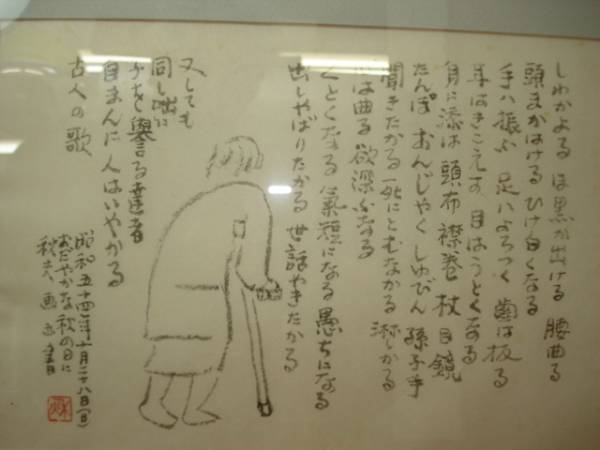 しわがよる ほ黒が出ける 腰曲る
頭まがはける ひげ白くなる
手ハ振ふ 足ハよろつく 歯は抜る
耳はきこえず 目はうとくなる
身に添は 頭布 襟巻 杖 目鏡
たんぽ おんじゃく しゆびん 孫子手
聞きたがる 死にともながる 淋しがる
心は曲る 欲深ふなる
くどくなる 気短になる 愚ちになる
出しやばりたがる 世話やきたがる
又しても
同じ咄に
子を誉る 達者
自まんに 人はいやがる
古人の歌
昭和五十四年十月二十八日(日)
おだやかな秋の日に
秋夫 画並書